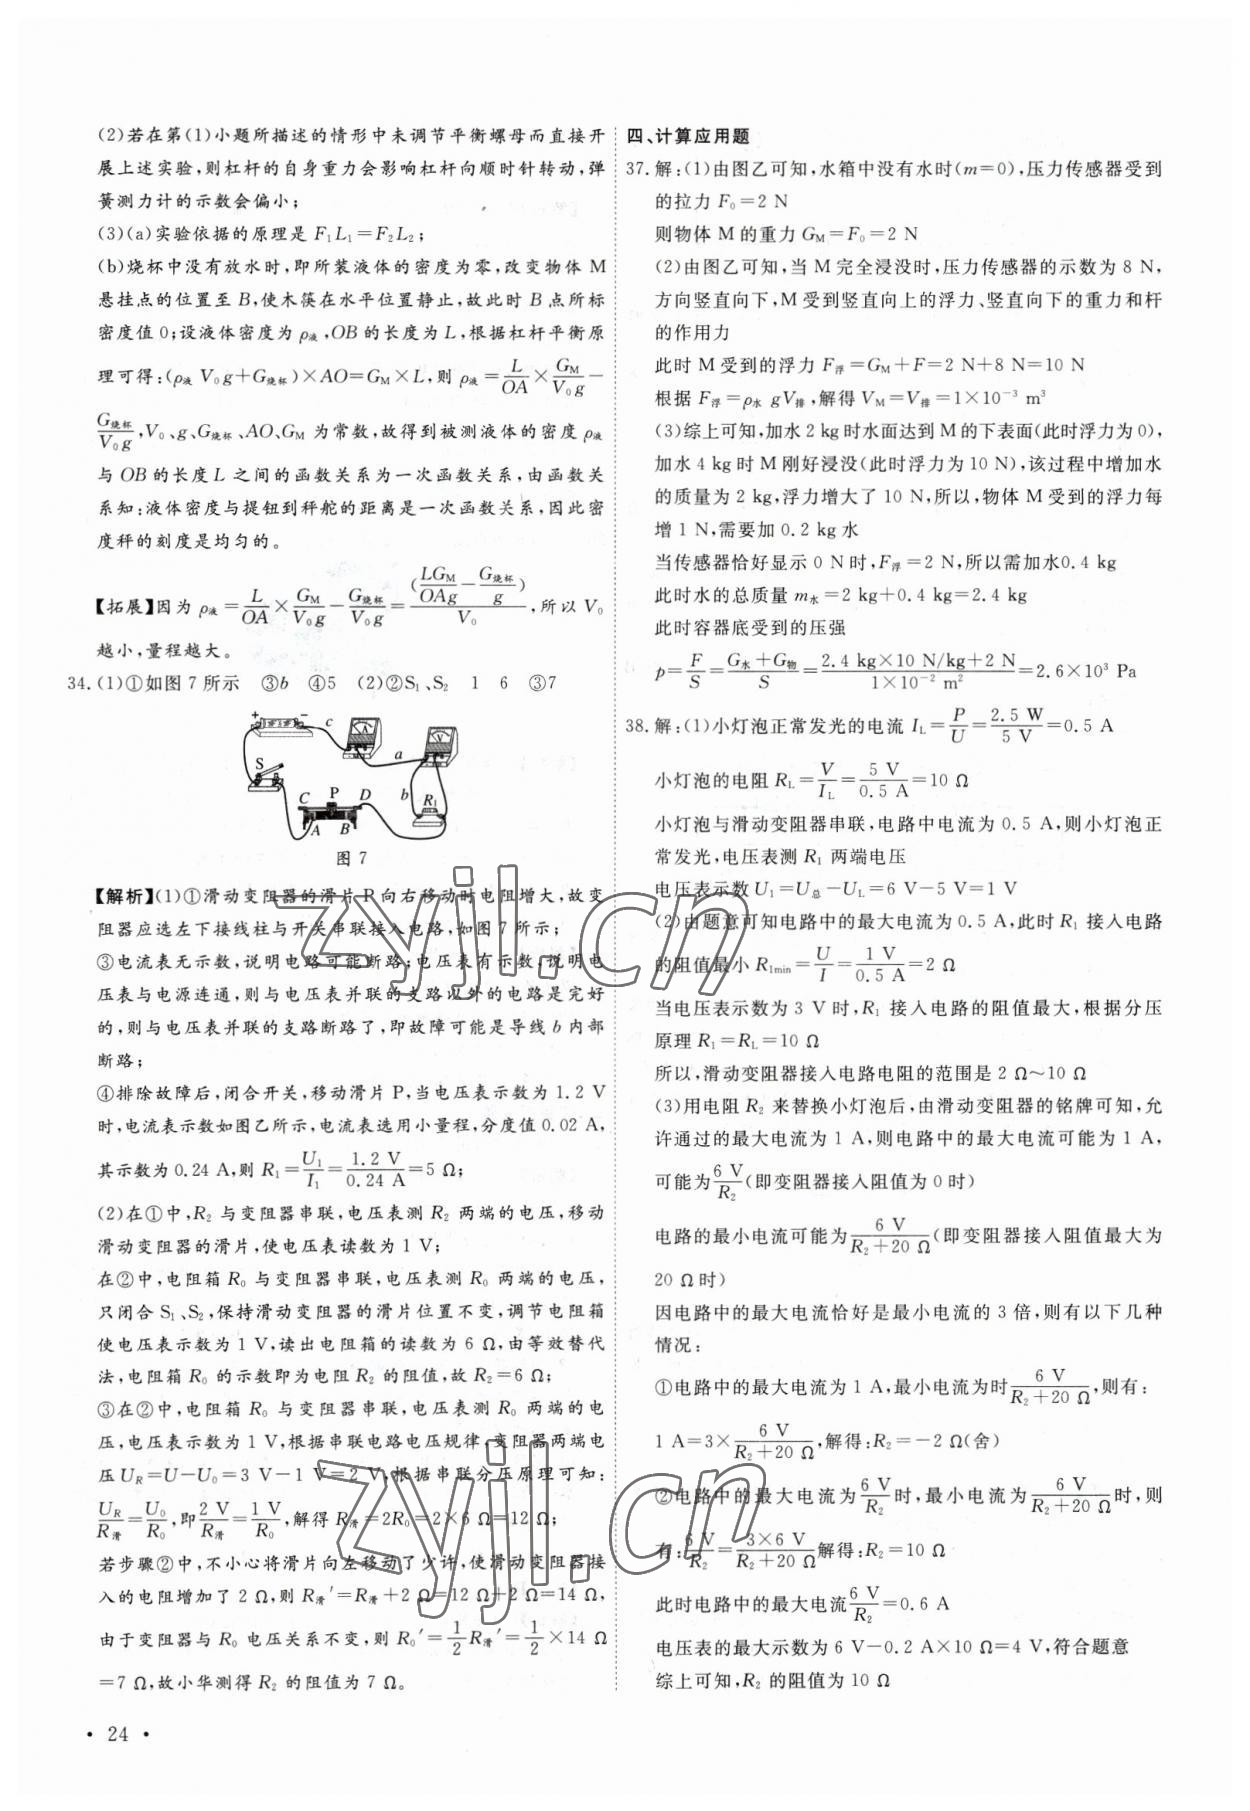 (2)若在第(1)小题所描述的情形中未调节平衡螺母而直接开
展上述实验,则杠杆的自身重力会影杠杆向顺时针转动,弹
簧测力计的示数会偏小;
(3)(a)实验依据的原理是 F₁L₁=F₂L₂;
(b)烧杯中没有放水时,即所装液体的密度为零,改变物体 M
悬挂点的位置至 B,使木筷在水平位置静止,故此时 B 点所标
密度值 0;设液体密度为 ρ液,OB 的长度为 L,根据杠杆平衡原
理可得:(ρ液 V₀g+G烧杯)×AO=G_M×L,则 ρ液=L/OA×G_M/V₀g−
G烧杯/V₀g,V₀、g、G烧杯、AO、G_M 为常数,故得到被测液体的密度 ρ液
与 OB 的长度 L 之间的函数关系为一次函数关系,由函数关
系知:液体密度与提钮到秤舵的距离是一次函数关系,因此密
度秤的刻度是均匀的。
【拓展】因为 ρ液=L/OA×G_M/V₀g−G烧杯/V₀g=(LG_M/OAg−G烧杯/g)/V₀,所以 V₀
越小,量程越大。
34.(1)①如图 7 所示 ③b ④5 (2)②S₁、S₂ 1 6 ③7
+ − c A V
S a
b
C P D R₁
A B
图 7
【解析】(1)①滑动变阻器的滑片 P 向右移动时电阻增大,故变
阻器应选左下接线柱与开关串联接入电路,如图 7 所示;
③电流表无示数,说明电路可能断路;电压表有示数,说明电
压表与电源连通,则与电压表并联的支路以外的电路是完好
的,则与电压表并联的支路断路了,即故障可能是导线 b 内部
断路;
④排除故障后,闭合开关,移动滑片 P,当电压表示数为 1.2 V
时,电流表示数如图乙所示,电流表选用小量程,分度值 0.02 A,
其示数为 0.24 A,则 R₁=U₁/I₁=1.2 V/0.24 A=5 Ω;
(2)在①中,R₂ 与变阻器串联,电压表测 R₂ 两端的电压,移动
滑动变阻器的滑片,使电压表读数为 1 V;
在②中,电阻箱 R₀ 与变阻器串联,电压表测 R₀ 两端的电压,
只闭合 S₁、S₂,保持滑动变阻器的滑片位置不变,调节电阻箱
使电压表示数为 1 V,读出电阻箱的读数为 6 Ω,由等效替代
法,电阻箱 R₀ 的示数即为电阻 R₂ 的阻值,故 R₂=6 Ω;
③在②中,电阻箱 R₀ 与变阻器串联,电压表测 R₀ 两端的电
压,电压表示数为 1 V,根据串联电路电压规律,变阻器两端电
压 U_R=U−U₀=3 V−1 V=2 V,根据串联分压原理可知:
U_R/R滑=U₀/R₀,即2 V/R滑=1 V/R₀,解得 R滑=2R₀=2×6 Ω=12 Ω;
若步骤②中,不小心将滑片向左移动了少许,使滑动变阻器接
入的电阻增加了 2 Ω,则 R滑′=R滑+2 Ω=12 Ω+2 Ω=14 Ω,
由于变阻器与 R₀ 电压关系不变,则 R₀′=1/2R滑′=1/2×14 Ω
=7 Ω,故小华测得 R₂ 的阻值为 7 Ω。
四、计算应用题
37.解:(1)由图乙可知,水箱中没有水时(m=0),压力传感器受到
的拉力 F₀=2 N
则物体 M 的重力 G_M=F₀=2 N
(2)由图乙可知,当 M 完全浸没时,压力传感器的示数为 8 N,
方向竖直向下,M 受到竖直向上的浮力、竖直向下的重力和杆
的作用力
此时 M 受到的浮力 F浮=G_M+F=2 N+8 N=10 N
根据 F浮=ρ水 gV排,解得 V_M=V排=1×10⁻³ m³
(3)综上可知,加水 2 kg 时水面达到 M 的下表面(此时浮力为 0),
加水 4 kg 时 M 刚好浸没(此时浮力为 10 N),该过程中增加水
的质量为 2 kg,浮力增大了 10 N,所以,物体 M 受到的浮力每
增 1 N,需要加 0.2 kg 水
当传感器恰好显示 0 N 时,F浮=2 N,所以需加水0.4 kg
此时水的总质量 m水=2 kg+0.4 kg=2.4 kg
此时容器底受到的压强
p=F/S=(G水+G物)/S=(2.4 kg×10 N/kg+2 N)/(1×10⁻² m²)=2.6×10³ Pa
38.解:(1)小灯泡正常发光的电流 I_L=P/U=2.5 W/5 V=0.5 A
小灯泡的电阻 R_L=V/I_L=5 V/0.5 A=10 Ω
小灯泡与滑动变阻器串联,电路中电流为 0.5 A,则小灯泡正
常发光,电压表测 R₁ 两端电压
电压表示数 U₁=U总−U_L=6 V−5 V=1 V
(2)由题意可知电路中的最大电流为 0.5 A,此时 R₁ 接入电路
的阻值最小 R₁min=U/I=1 V/0.5 A=2 Ω
当电压表示数为 3 V 时,R₁ 接入电路的阻值最大,根据分压
原理 R₁=R_L=10 Ω
所以,滑动变阻器接入电路电阻的范围是 2 Ω~10 Ω
(3)用电阻 R₂ 来替换小灯泡后,由滑动变阻器的铭牌可知,允
许通过的最大电流为 1 A,则电路中的最大电流可能为 1 A,
可能为6 V/R₂(即变阻器接入阻值为 0 时)
电路的最小电流可能为6 V/(R₂+20 Ω)(即变阻器接入阻值最大为
20 Ω 时)
因电路中的最大电流恰好是最小电流的 3 倍,则有以下几种
情况:
①电路中的最大电流为 1 A,最小电流为时6 V/(R₂+20 Ω),则有:
1 A=3×6 V/(R₂+20 Ω),解得:R₂=−2 Ω(舍)
②电路中的最大电流为6 V/R₂时,最小电流为6 V/(R₂+20 Ω)时,则
有:6 V/R₂=3×6 V/(R₂+20 Ω)解得:R₂=10 Ω
此时电路中的最大电流6 V/R₂=0.6 A
电压表的最大示数为 6 V−0.2 A×10 Ω=4 V,符合题意
综上可知,R₂ 的阻值为 10 Ω
• 24 •
zyjl.cn
zyjl.cn